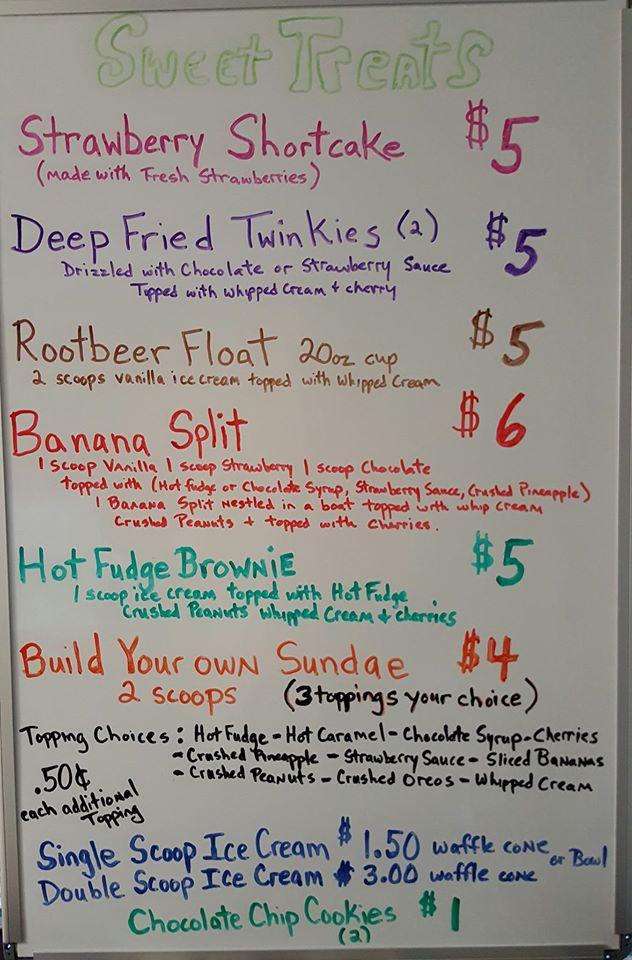 Sweet Treats
Strawberry Shortcake $5
(made with Fresh Strawberries)
Deep Fried Twinkies (2) $5
Drizzled with Chocolate or Strawberry Sauce
Topped with whipped Cream + cherry
Rootbeer Float 20oz cup $5
2 scoops vanilla ice cream topped with whipped Cream
Banana Split $6
1 scoop Vanilla 1 scoop Strawberry 1 scoop Chocolate
topped with (Hot fudge or Chocolate Syrup, Strawberry Sauce, Crushed Pineapple)
1 Banana Split nestled in a boat topped with whip cream
Crushed Peanuts + topped with Cherries.
Hot Fudge Brownie $5
1 scoop ice cream topped with Hot Fudge
Crushed Peanuts Whipped Cream + cherries
Build Your own Sundae $4
2 scoops (3 toppings your choice)
Topping Choices : Hot Fudge - Hot Caramel - Chocolate Syrup - Cherries
- Crushed Pineapple - Strawberry Sauce - Sliced Bananas
- Crushed Peanuts - Crushed Oreos - Whipped Cream
.50¢
each additional
Topping
Single Scoop Ice Cream $1.50 waffle cone or Bowl
Double Scoop Ice Cream $3.00 waffle cone
Chocolate Chip Cookies $1
(2)